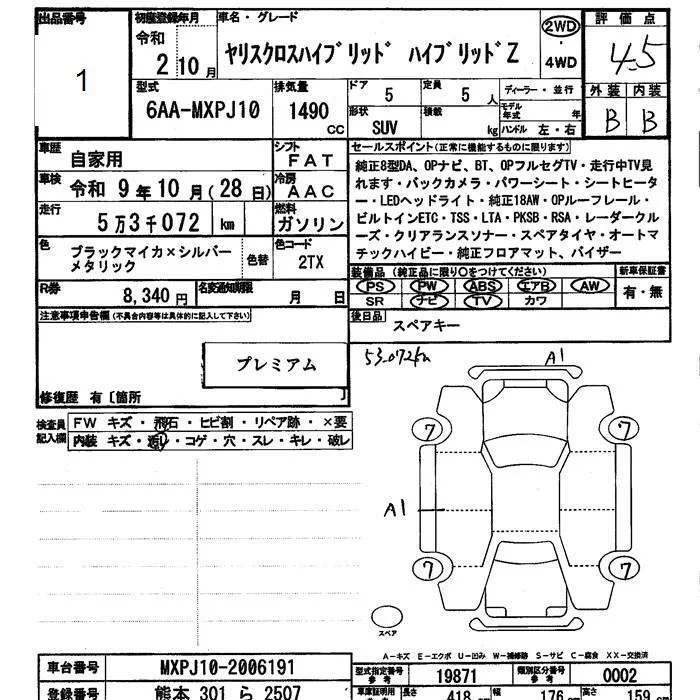 出品番号 1
初度登録年月 令和 2 10 月
車名・グレード ヤリスクロスハイブリッド ハイブリッドZ
2WD・4WD
評価点 4.5
型式 6AA-MXPJ10
排気量 1490 CC
ドア 5
定員 5 人
形状 SUV
積載 kg
ディーラー・並行
モデル年式 年
ハンドル 左・右
外装 内装
B B
車歴 自家用
シフト FAT
車検 令和 9 年 10 月 (28 日)
冷房 AAC
走行 5万3千072 km
燃料 ガソリン
色 ブラックマイカ×シルバーメタリック
色替
色コード 2TX
R券 8,340 円
名変通知期限 月 日
セールスポイント(正常に機能するものに限ります)
純正8型DA、OPナビ、BT、OPフルセグTV・走行中TV見
れます・バックカメラ・パワーシート・シートヒータ
ー・LEDヘッドライト・純正18AW・OPルーフレール・
ビルトインETC・TSS・LTA・PKSB・RSA・レーダークル
ーズ・クリアランスソナー・スペアタイヤ・オートマ
チックハイビー・純正フロアマット、バイザー
装備品 (純正品に限り○をつけてください)
新車保証書
PS PW ABS エアB AW
SR ナビ TV カワ
有・無
後日品 スペアキー
注意事項申告欄 (不具合内容等は具体的に記入して下さい)
プレミアム
修復歴 有〔箇所 〕
検査員記入欄
FW キズ・飛石・ヒビ割・リペア跡・×要
内装 キズ・汚し・コゲ・穴・スレ・キレ・破レ
53.072km
A1
7 7
A1
7 7
スペア
A-キズ E-エクボ U-凹み W-補修跡 S-サビ C-腐食 XX-交換済
車台番号 MXPJ10-2006191
型式指定番号参考 19871
類別区分番号参考 0002
登録番号 熊本 301 ら 2507
車庫証明用参考 長さ 418 幅 176 高さ 159